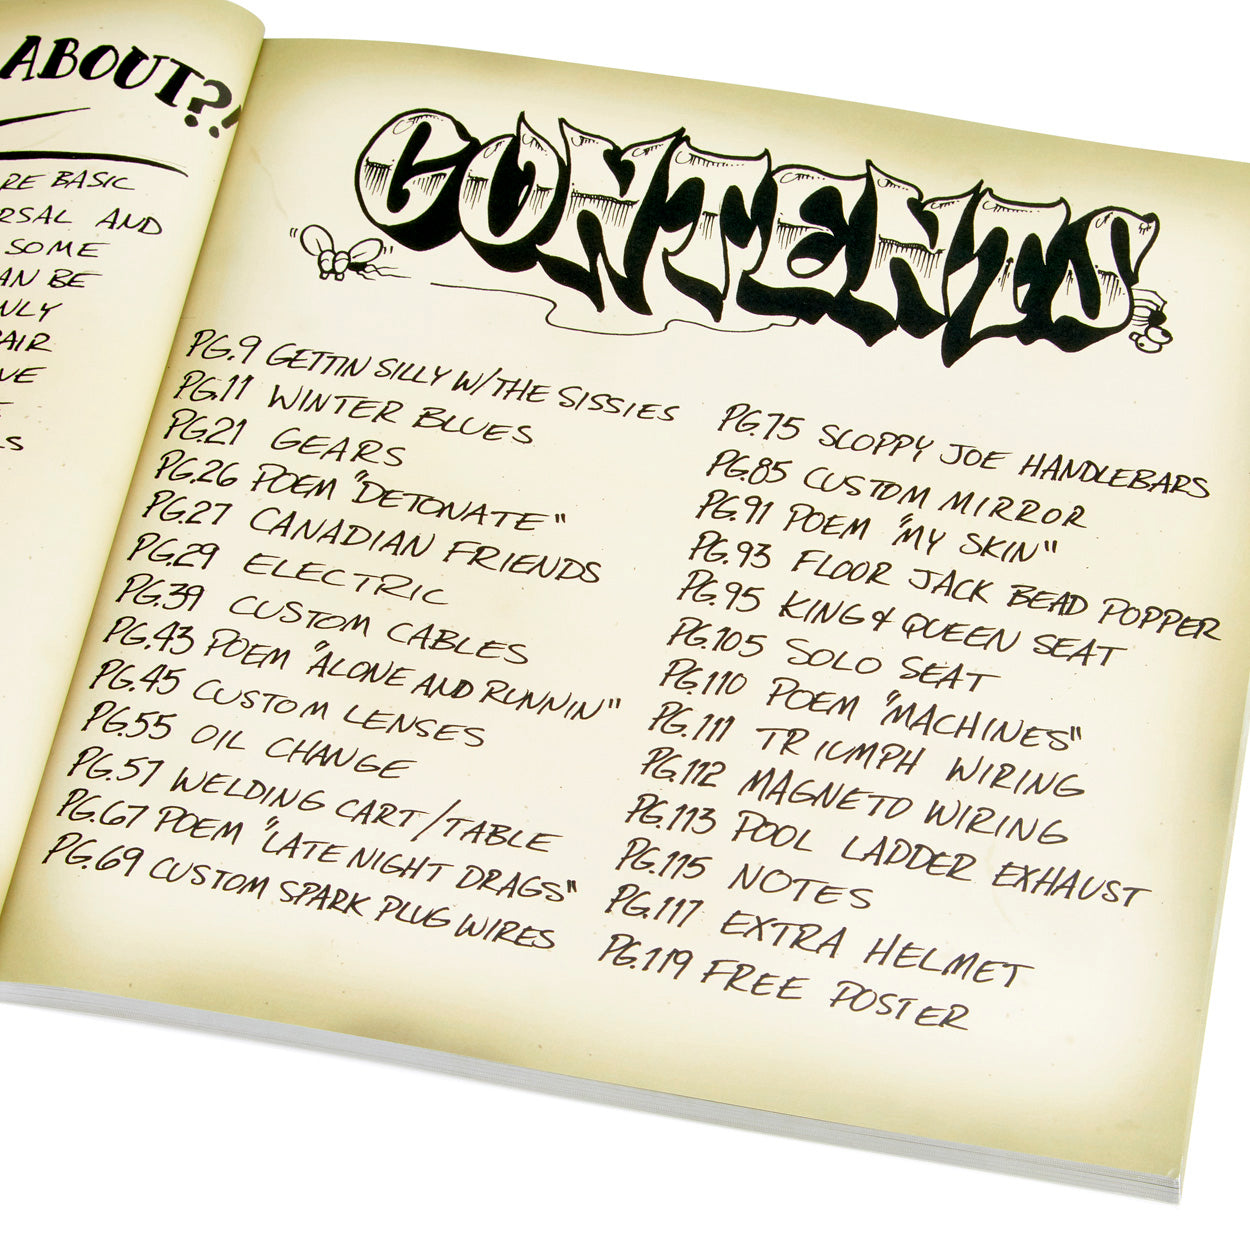 ABOUT?!
RE BASIC
RSAL AND
SOME
AN BE
NLY
AIR
VE
LS
CONTENTS
PG.9 GETTIN SILLY W/THE SISSIES
PG.11 WINTER BLUES
PG.21 GEARS
PG.26 POEM "DETONATE"
PG.27 CANADIAN FRIENDS
PG.29 ELECTRIC
PG.39 CUSTOM CABLES
PG.43 POEM "ALONE AND RUNNIN"
PG.45 CUSTOM LENSES
PG.55 OIL CHANGE
PG.57 WELDING CART/TABLE
PG.67 POEM "LATE NIGHT DRAGS"
PG.69 CUSTOM SPARK PLUG WIRES
PG.75 SLOPPY JOE HANDLEBARS
PG.85 CUSTOM MIRROR
PG.91 POEM "MY SKIN"
PG.93 FLOOR JACK BEAD POPPER
PG.95 KING & QUEEN SEAT
PG.105 SOLO SEAT
PG.110 POEM "MACHINES"
PG.111 TRIUMPH WIRING
PG.112 MAGNETO WIRING
PG.113 POOL LADDER EXHAUST
PG.115 NOTES
PG.117 EXTRA HELMET
PG.119 FREE POSTER